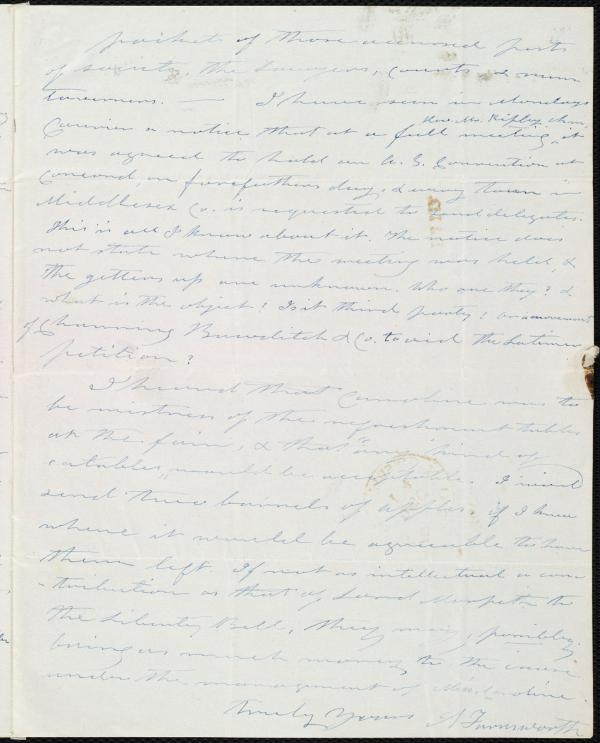 pockets of those accursed pests
of society, the lawyers, courts &
taverners. — I have seen in Mondays
Rev. Mr. Ripley chn,
Courier a notice that at a full meeting, it
was agreed to hold an A. S. Convention at
Concord, on forefathers day, & every town in
Middlesex Co. is requested to send delegates.
This is all I know about it. The notice does
not state where the meeting was held, &
the getters up are unknown. Who are they? &
what is the object? Is it third party? or a movement
of Channing Bowditch & Co. to aid the Latimer
petition?
I heard that Caroline was to
be mistress of the refreshment tables
at the fair, & that "any kind of
eatables" would be acceptable. I wish
send three barrels of apples if I knew
where it would be agreeable to have
them left. If not as intellectual a con
-tribution as that of Lord Morpeth to
the Liberty Bell, they may, possibly,
bring as much money to the cause
under the management of Miss Caroline.
truly Yours A Farnsworth